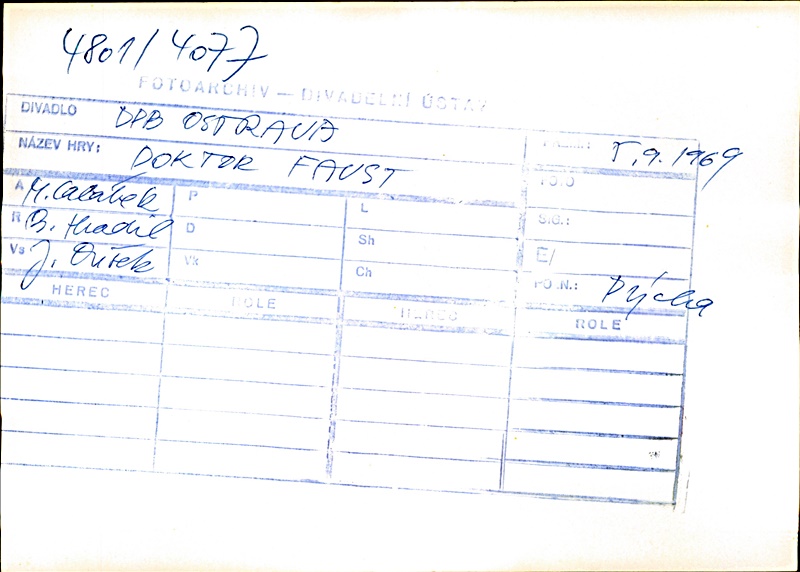 4801/4077
FOTOARCHIV — DIVADELNÍ ÚSTAV
DIVADLO DPB OSTRAVA
NÁZEV HRY: DOKTOR FAUST 5.9.1969
A P L FOTO
R B. Hradil D Sh SIG.:
Vs J. Dušek Vk Ch E/
HEREC ROLE HEREC ROLE